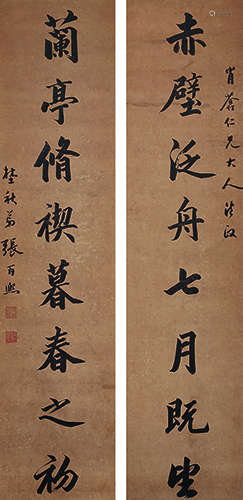 赤壁泛舟七月既望
肖蒼仁兄大人清政
蘭亭脩禊暮春之初
埜秋弟張百熙